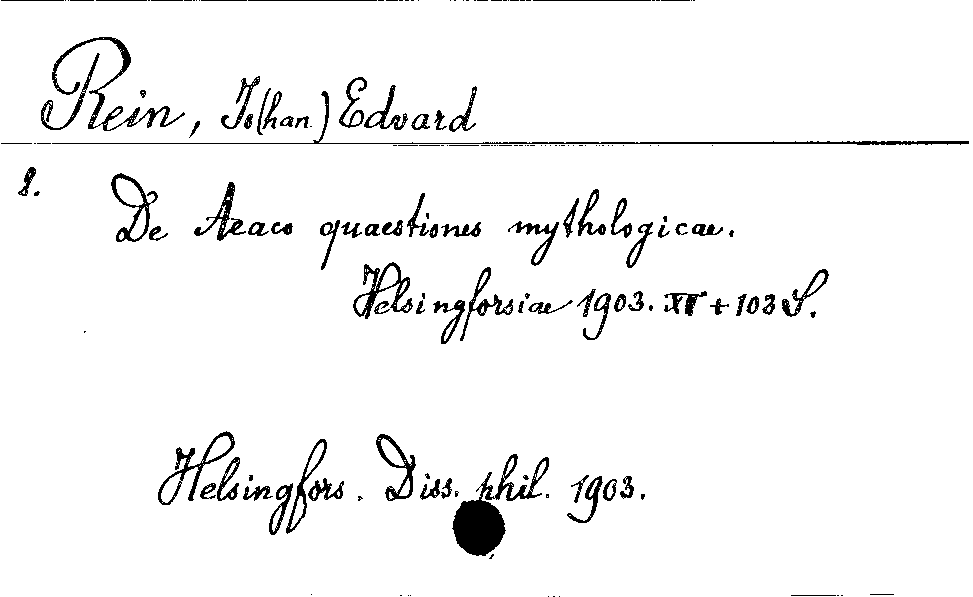 Rein, Jo(han) Edvard
8.
De Aeaco quaestiones mythologicae.
Helsingforsiae 1903. + 103 S.
Helsingfors. Diss. phil. 1903.